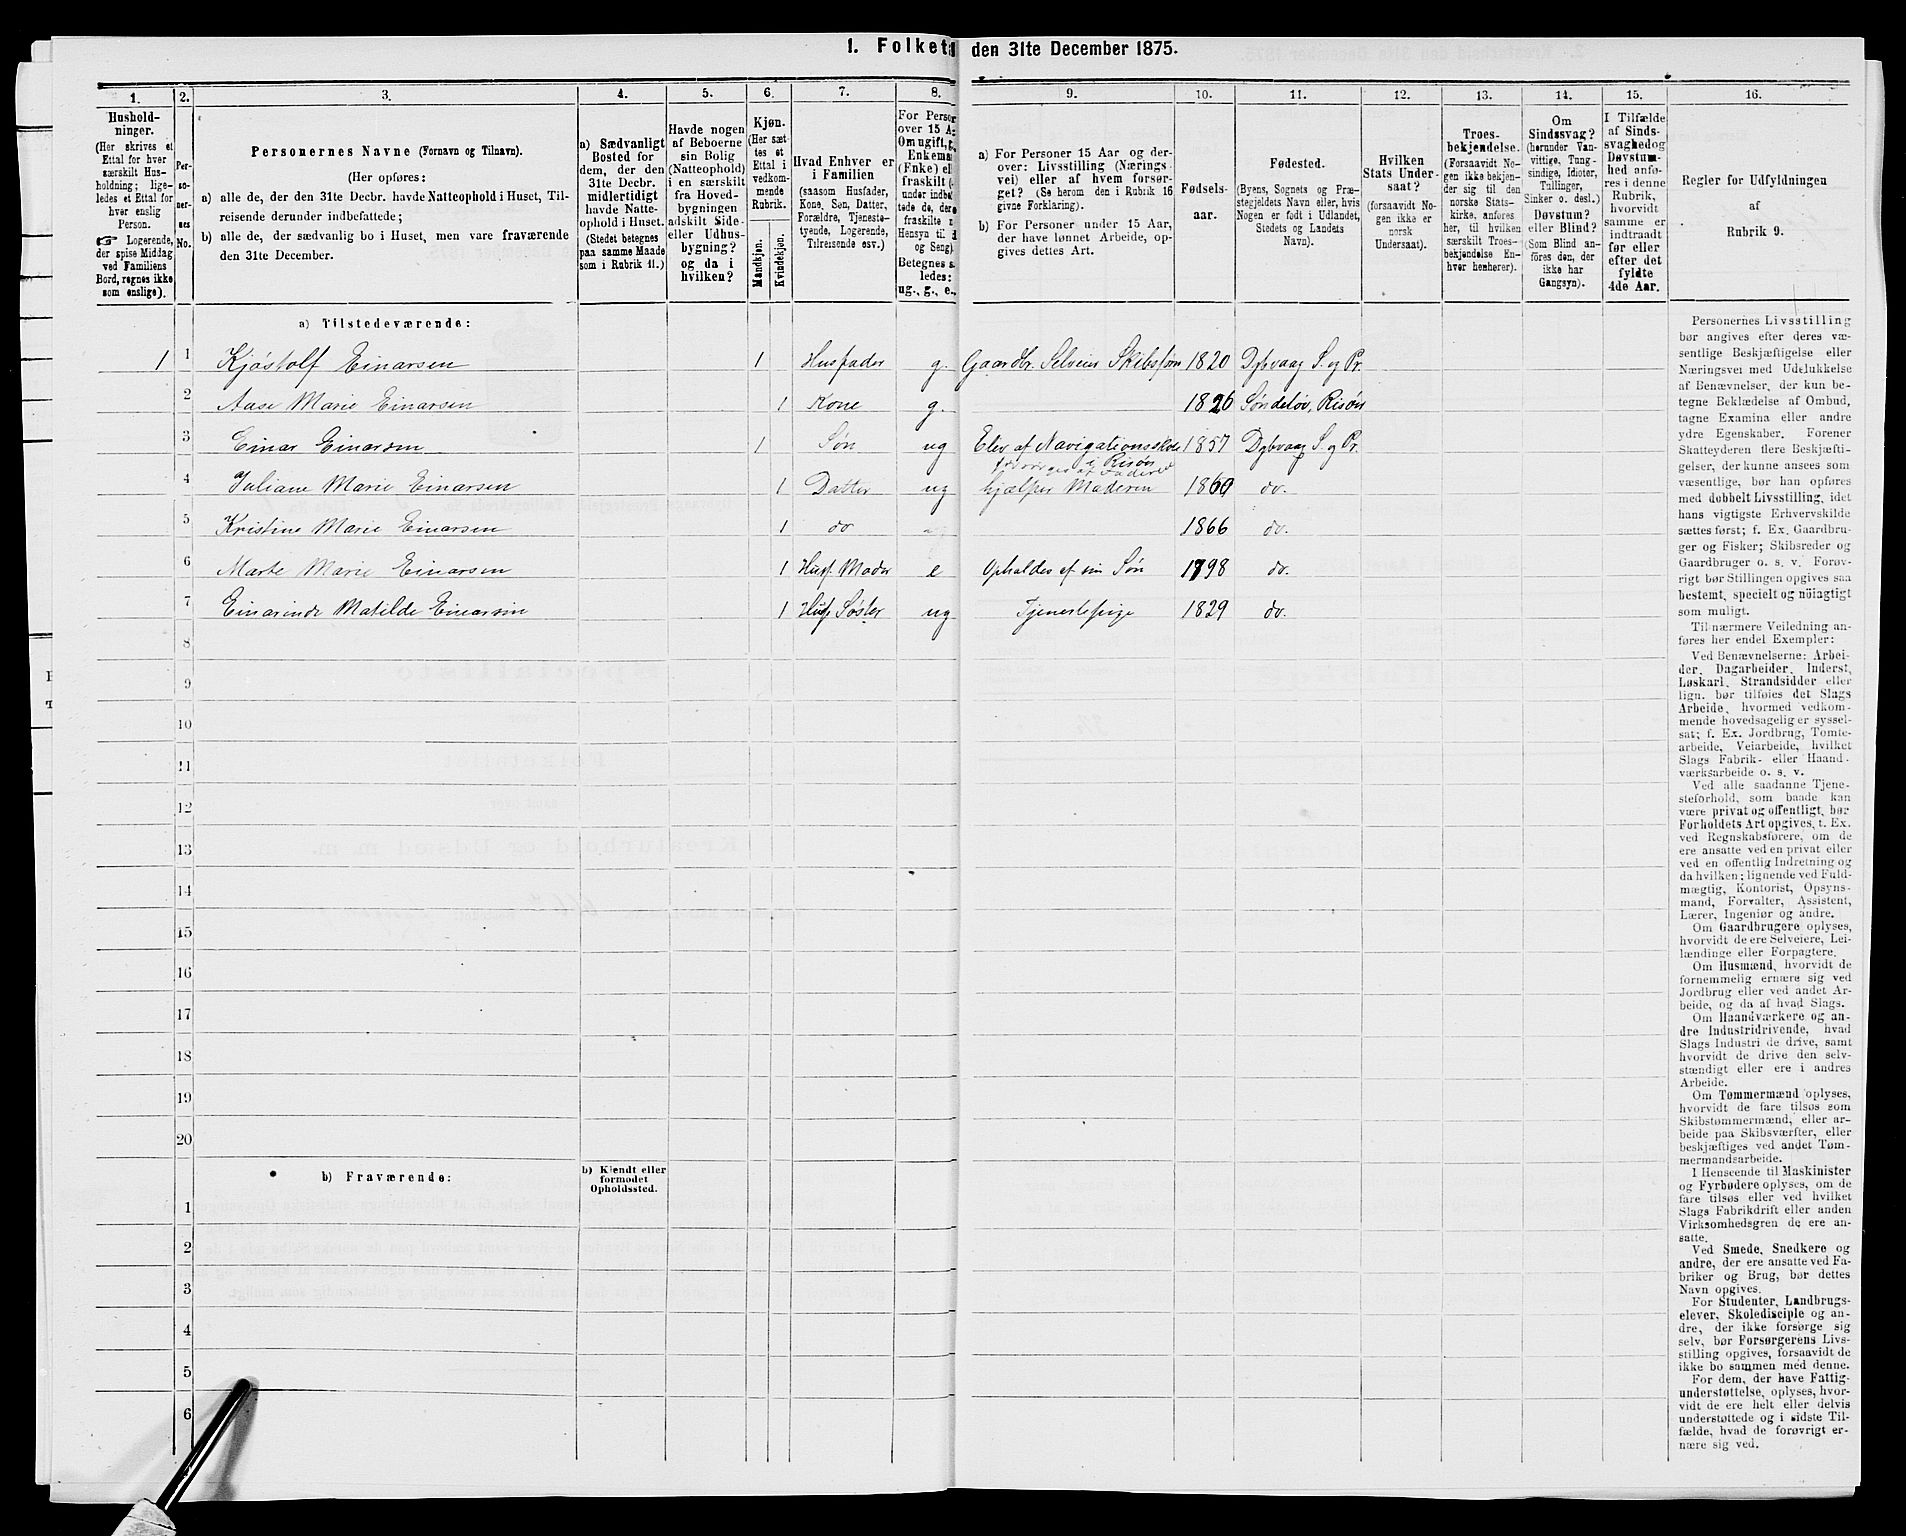 1. Folket
den 31te December 1875.
1.
2.
3.
4.
5.
6.
7.
8.
9.
10.
11.
12.
13.
14.
15.
16.
Hushold-
ninger.
(Her skrives et
Ettal for hver
særskilt Hus-
holdning; lige-
ledes et Ettal for
hver enslig
Person.
☞ Logerende,
der spise Middag
ved Familiens
Bord, regnes ikke
som enslige).
Per-
so-
ner-
nes
No.
Personernes Navne (Fornavn og Tilnavn).
(Her opføres:
a) alle de, der den 31te Decbr. havde Natteophold i Huset, Til-
reisende derunder indbefattede;
b) alle de, der sædvanlig bo i Huset, men vare fraværende
den 31te December.
a) Sædvanligt
Bosted for
dem, der den
31te Decbr.
midlertidigt
havde Natte-
ophold i Huset.
(Stedet betegnes
paa samme Maade
som i Rubrik 11.)
Havde nogen
af Beboerne
sin Bolig
(Natteophold)
i en særskilt
fra Hoved-
bygningen
adskilt Side-
eller Udhus-
bygning?
og da i
hvilken?
Kjøn.
(Her sæt-
tes et
Ettal i
vedkom-
mende
Rubrik.
Mandkjøn.
Kvindekjøn.
Hvad Enhver er
i Familien
(saasom Husfader,
Kone, Søn, Datter,
Forældre, Tjeneste-
tyende, Logerende,
Tilreisende osv.)
For Person
over 15 A
Om ugift, g
Enkema
(Enke) el
fraskilt
under indbe
tede de, der
fraskilte
Hensyn til
og Seng).
Betegnes s
ledes:
ug., g., e.,
a) For Personer 15 Aar og der-
over: Livsstilling (Nærings-
vei) eller af hvem forsør-
get? (Se herom den i Rubrik 16
givne Forklaring).
b) For Personer under 15 Aar,
der have lønnet Arbeide, op-
gives dettes Art.
Fødsels-
aar.
Fødested.
(Byens, Sognets og Præ-
stegjeldets Navn eller, hvis
Nogen er født i Udlandet,
Stedets og Landets
Navn).
Hvilken
Stats Under-
saat?
(forsaavidt No-
gen ikke er
norsk
Undersaat).
Troes-
bekjendelse.
(Forsaavidt No-
gen ikke bekjen-
der sig til den
norske Stats-
kirke, anføres
her, til hvilken
særskilt Troes-
bekjendelse En-
hver henhører).
Om
Sindssvag?
(herunder Van-
vittige, Tung-
sindige, Idioter,
Tullinger,
Sinker o. desl.)
Døvstum?
eller Blind?
(Som Blind an-
føres den, der
ikke har
Gangsyn).
I Tilfælde
af Sinds-
svaghed og
Døvstum-
hed anfø-
res i denne
Rubrik,
hvorvidt
samme er
indtraadt
før eller
efter det
fyldte
4de Aar.
Regler for Udfyldningen
af
Rubrik 9.
a) Tilstedeværende:
1 1 Kjøstolf Einarsen 1 Husfader g. Gaardbr. Selveier Skibsføre 1820 Dybvaag S. og Pr.
2 Aase Marie Einarsen 1 Kone g. 1826 Søndeløv, Risør
3 Einar Einarsen 1 Søn ug Elev af Navigationsskole 1857 Dybvaag S. og Pr.
i Risør
forsørges af Faderen
4 Juliane Marie Einarsen 1 Datter ug hjælper Moderen 1860 do.
5 Kristine Marie Einarsen 1 do 1866 do.
6 Marte Marie Einarsen 1 Husf. Moder e Opholdes af sin Søn 1798 do.
7 Einarinde Matilde Einarsen 1 Husf Søster ug Tjenestepige 1829 do.
8
9
10
11
12
13
14
15
16
17
18
19
20
b) Fraværende:
b) Kjendt eller
formodet
Opholdssted.
1
2
3
4
5
6
Personernes Livsstilling
bør angives efter deres væ-
sentlige Beskjæftigelse eller
Næringsvei med Udelukkelse
af Benævnelser, der kun be-
tegne Beklædelse af Ombud,
tagne Examina eller andre
ydre Egenskaber. Forener
Skatteyderen flere Beskjæfti-
gelser, der kunne ansees som
væsentlige, bør han opføres
med dobbelt Livsstilling, idet
hans vigtigste Erhvervskilde
sættes først; f. Ex. Gaardbru-
ger og Fisker; Skibsreder og
Gaardbruger o. s. v. Forøv-
rigt bør Stillingen opgives saa
bestemt, specielt og nöiagtigt
som muligt.
Til nærmere Veiledning an-
føres her endel Exempler:
Ved Benævnelserne: Arbei-
der, Dagarbeider, Inderst,
Løskarl, Strandsidder eller
lign. bør tilføies det Slags
Arbeide, hvormed vedkom-
mende hovedsagelig er syssel-
sat; f. Ex. Jordbrug, Tomte-
arbeide, Veiarbeide, hvilket
Slags Fabrik- eller Haand-
værksarbeide o. s. v.
Ved alle saadanne Tjene-
steforhold, som baade kan
være privat og offentligt, bør
Forholdets Art opgives, t. Ex.
ved Regnskabsførere, om de
ere ansatte ved en privat eller
ved en offentlig Indretning og
da hvilken; lignende ved Fuld-
mægtig, Kontorist, Opsyns-
mand, Forvalter, Assistent,
Lærer, Ingeniør og andre.
Om Gaardbrugere oplyses,
hvorvidt de ere Selveiere, Lei-
lændinge eller Forpagtere.
Om Husmænd, hvorvidt de
fornemmelig ernære sig ved
Jordbrug eller ved andet Ar-
beide, og da af hvad Slags.
Om Haandværkere og an-
dre Industridrivende, hvad
Slags Industri de drive, samt
hvorvidt de drive den selv-
stændigt eller ere i andres
Arbeide.
Om Tømmermænd oplyses,
hvorvidt de fare tilsøs som
Skibstømmermænd, eller ar-
beide paa Skibsværfter, eller
beskjæftiges ved andet Tøm-
mermandsarbeide.
I Henseende til Maskinister
og Fyrbødere oplyses, om de
fare tilsøs eller ved hvilket
Slags Fabrikdrift eller anden
Virksomhedsgren de ere an-
satte.
Ved Smede, Snedkere og
andre, der ere ansatte ved Fa-
briker og Brug, bør dettes
Navn opgives.
For Studenter, Landbrugs-
elever, Skoledisciple og an-
dre, der ikke forsørge sig
selv, bør Forsørgerens Livs-
stilling opgives, forsaavidt de
ikke bo sammen med denne.
For dem, der have Fattig-
understøttelse, oplyses, hvor-
vidt de ere helt eller delvis
understøttede og i sidste Til-
fælde, hvad de forøvrigt er-
nære sig ved.